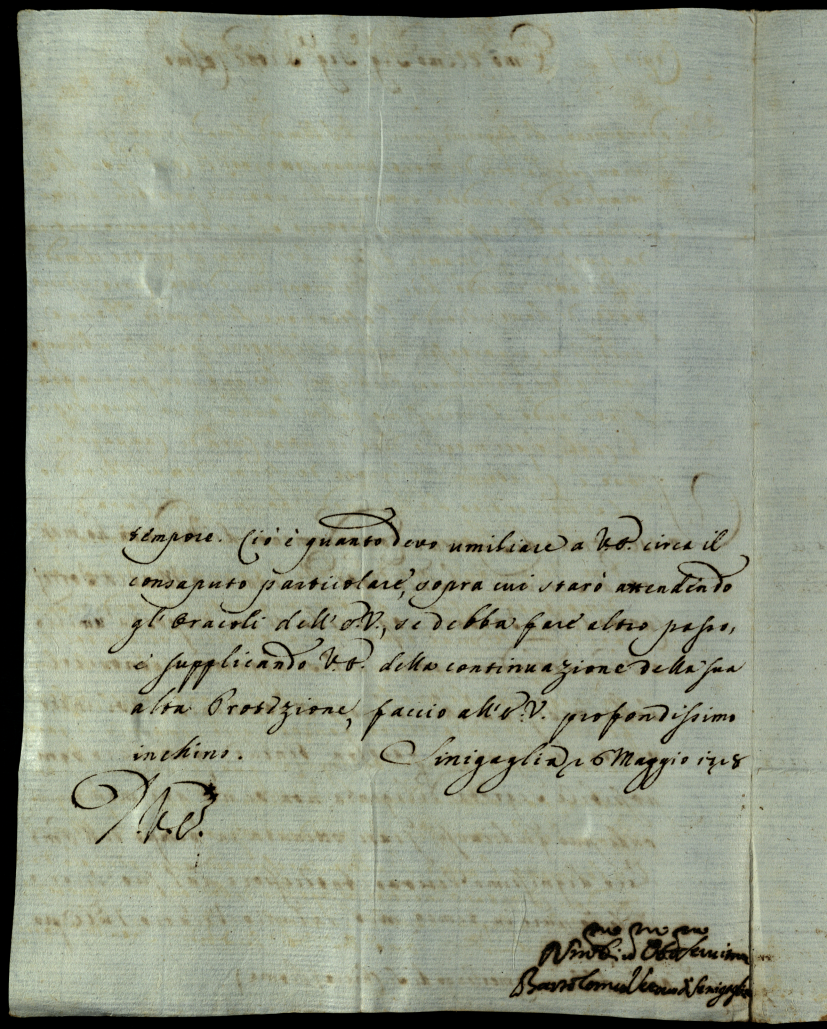 sempre. Ciò è quanto devo umiliare a V.E. circa il
consaputo particolare, sopra cui starò attendendo
gl'Oracoli dell'E.V., se debba fare altro passo,
e supplicando V.E. della continuazione della sua
alta Protezione, faccio all'E.V. profondissimo
inchino. Sinigaglia 26 Maggio
D.V.E.
Bartolomeo di Senigaglia